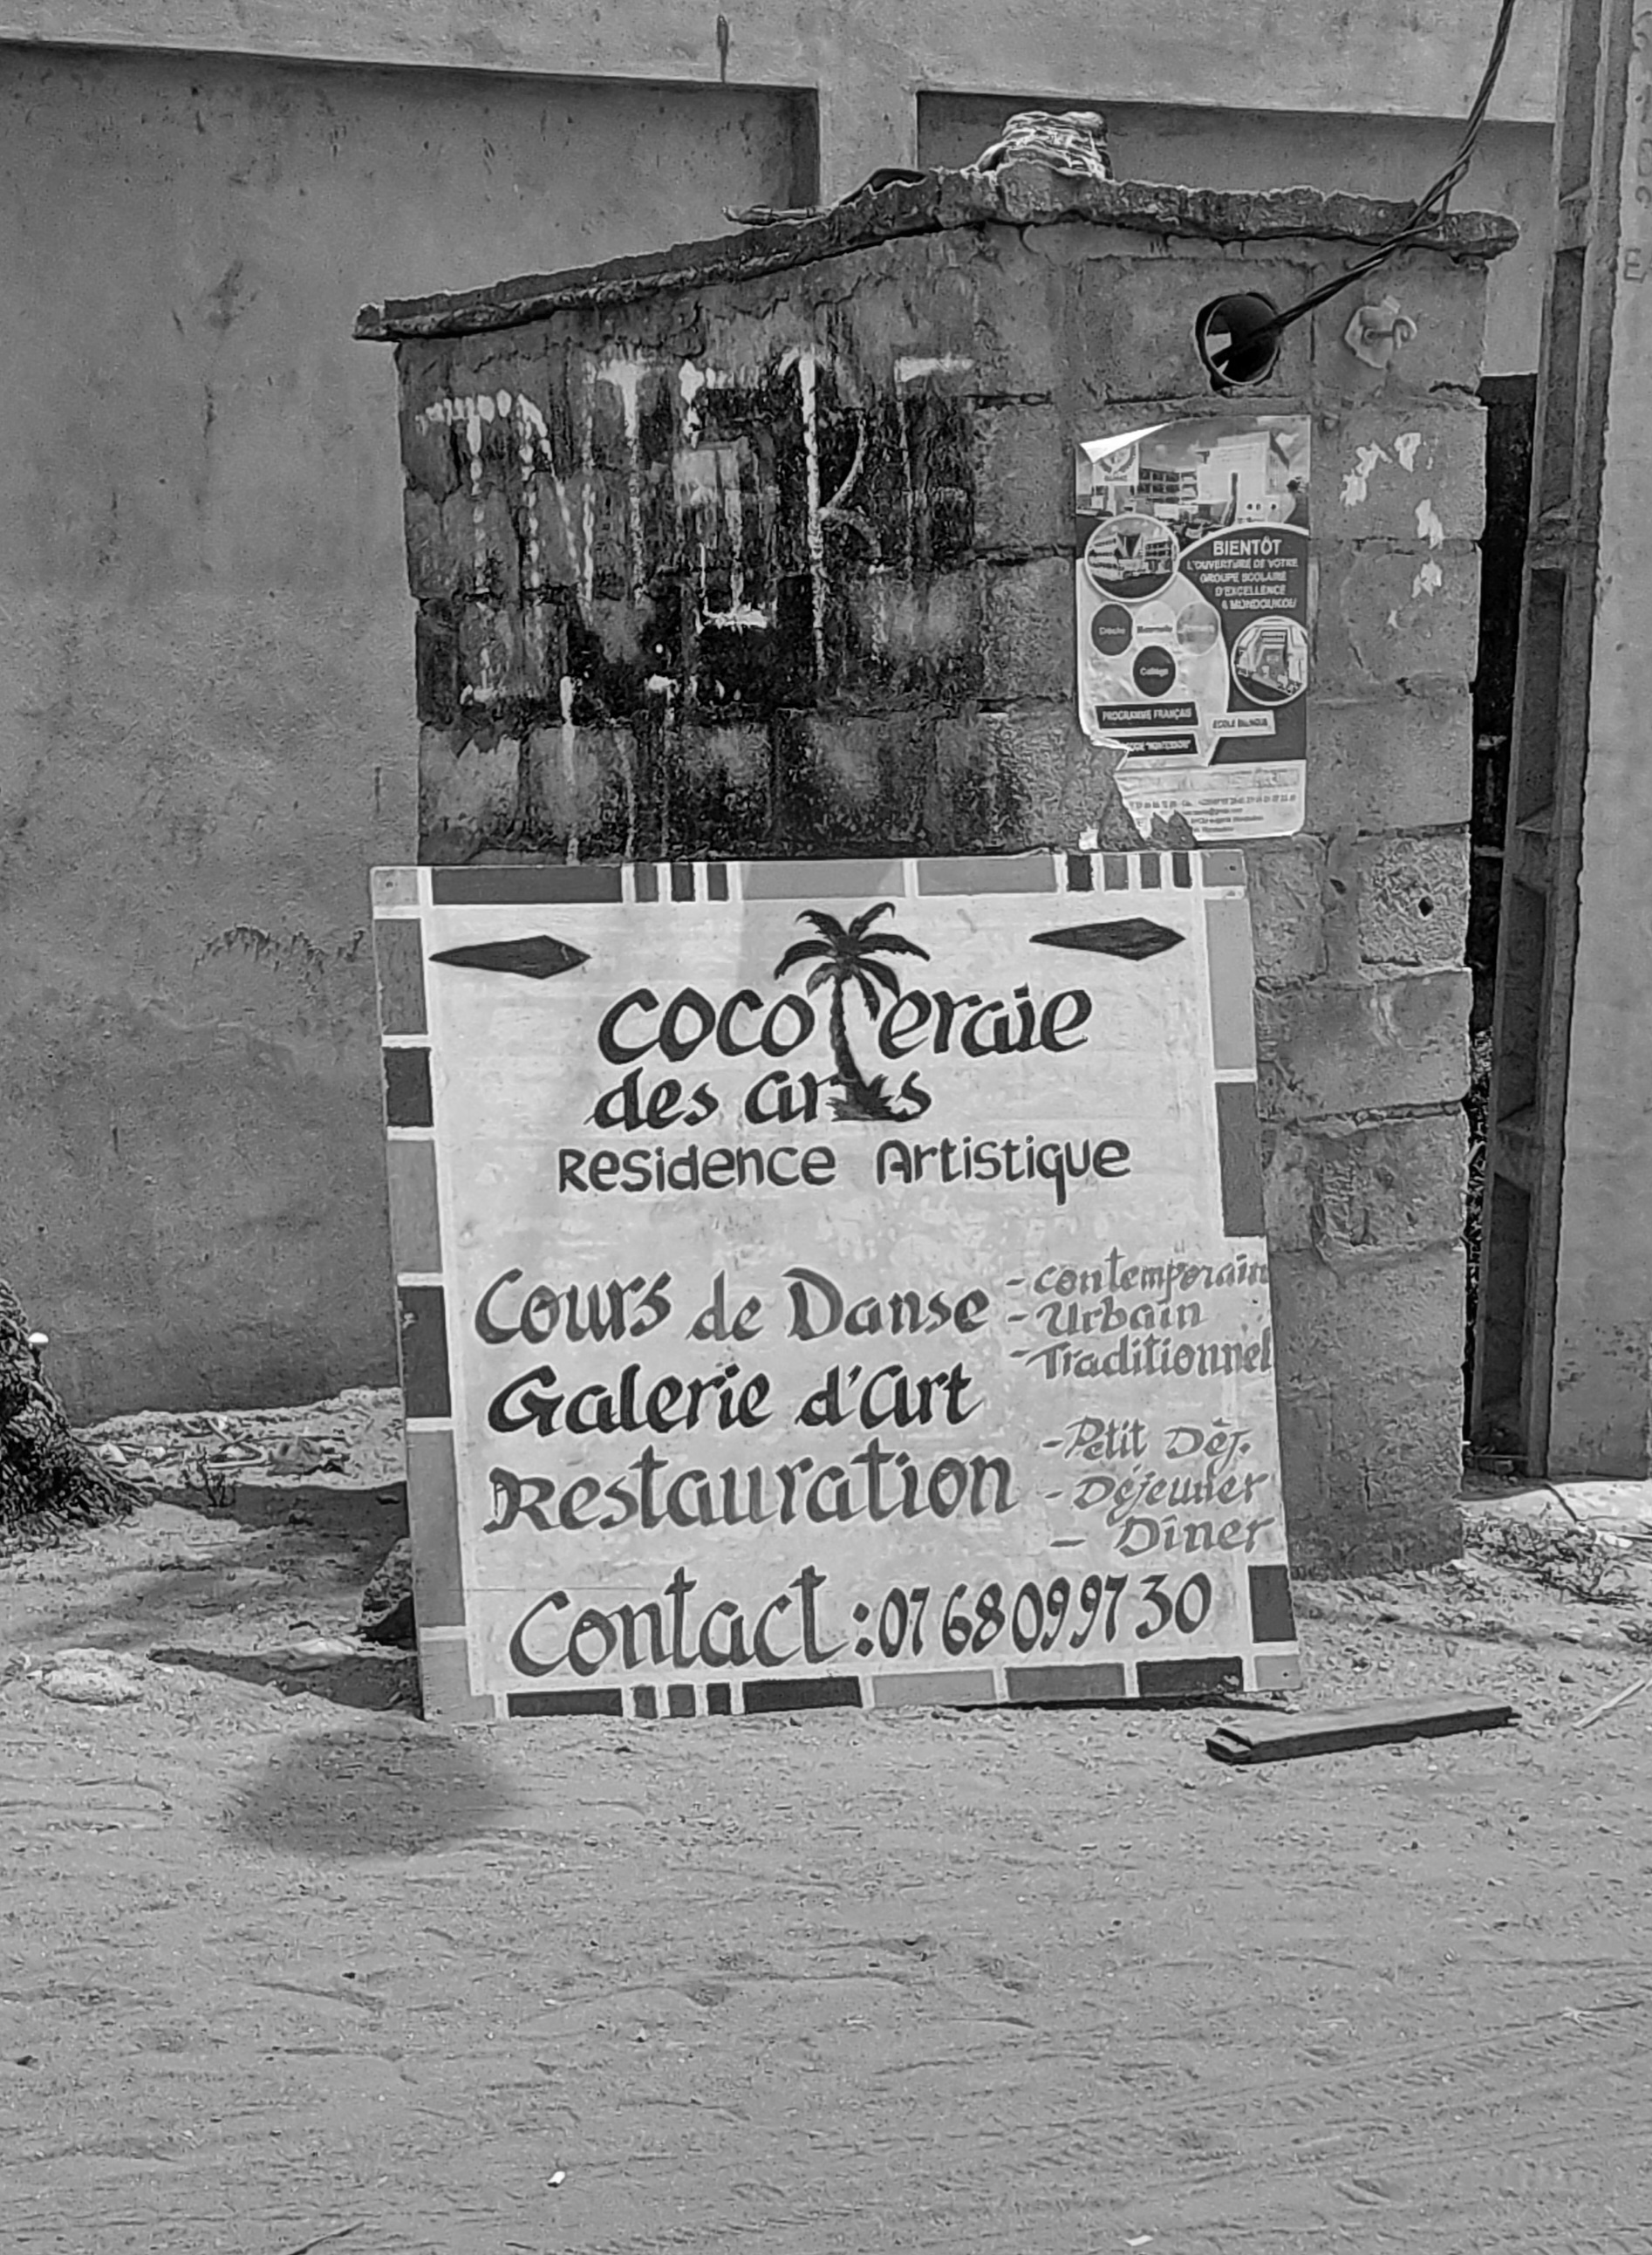 BIENTÔT
L'OUVERTURE DE VOTRE
GROUPE SCOLAIRE
D'EXCELLENCE
À MONDOUKOU
Crèche
Maternelle
Collège
PROGRAMME FRANÇAIS
ÉCOLE BILINGUE
"MONTESSORI"
cocoTeraie
des arTs
Residence Artistique
Cours de Danse
- Contemporain
- Urbain
- Traditionnel
Galerie d'art
Restauration
- Petit Déj.
- Déjeuner
- Dîner
Contact : 07 68 09 97 30